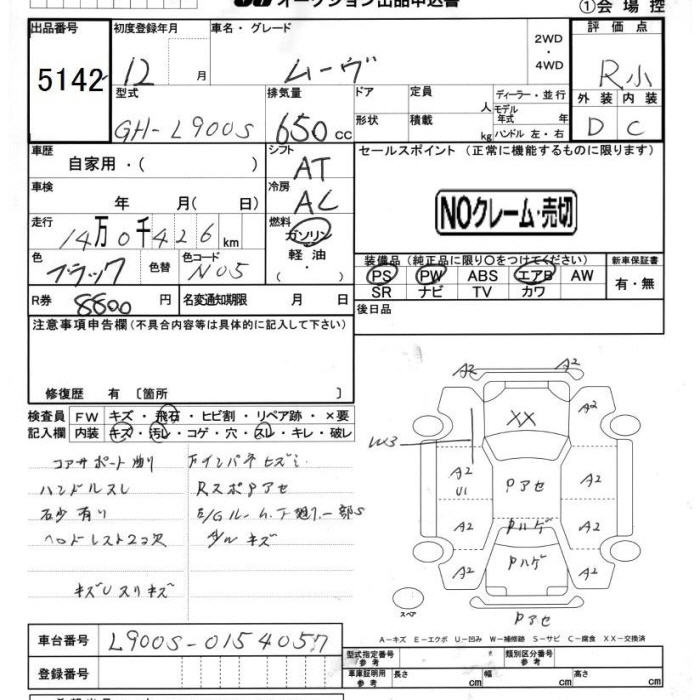 オークション出品申込書
①会場控
出品番号 初度登録年月 車名・グレード 評価点
5142 12月 ムーヴ 2WD・4WD R小
型式 排気量 ドア 定員 人 ディーラー・並行 外装 内装
GH-L900S 650cc 形状 積載 kg モデル年式 年 D C
ハンドル 左・右
車歴 シフト セールスポイント (正常に機能するものに限ります)
自家用・( ) AT
車検 冷房
年 月( 日) AC NOクレーム・売切
走行 燃料
14万0千426km ガソリン・軽油・( )
色 色替 色コード 装備品 (純正品に限り○をつけてください) 新車保証書
ブラック N05 PS PW ABS エアB AW 有・無
SR ナビ TV カワ
R券 8800円 名変通知期限 月 日 後日品
注意事項申告欄 (不具合内容等は具体的に記入して下さい)
修復歴 有 〔箇所 〕
検査員 FW キズ・飛石・ヒビ割・リペア跡・×要
記入欄 内装 キズ・汚レ・コゲ・穴・スレ・キレ・破レ
コアサポート
ハンドルスレ
石少有り
ヘッドレスト2コ欠
キズUスリキズ
A2 A2
A2 XX A2
W3
A2 U1 Pアセ A2
A2 Pハゲ A2
A2 Pハゲ A2
スペア Pアセ
A-キズ E-エクボ U-凹み W-補修跡 S-サビ C-腐食 XX-交換済
車台番号 L900S-0154057
型式指定番号 参考 類別区分番号 参考
登録番号 車庫証明用 参考 長さ cm 幅 cm 高さ cm